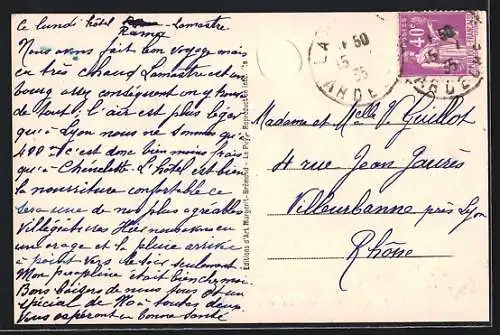 Ce lundi hôtel Lamastre
Ramp
Nous avons fait bon voyage mais
eu très chaud Lamastre est un
bourg assez conséquent on y trouve
de tout. l'air est plus léger
qu'à Lyon nous ne sommes qu'à
400 m c'est donc bien moins frais
qu'à Chénelette. L'hôtel est bien
la nourriture confortable ce
sera une de nos plus agréables
villégiatures Hier nous avons eu
un orage et la pluie arrive
à point vers le soir seulement.
Mon pauvre était bien chez moi
Bons baisers de nous tous et un
spécial de à toutes deux.
Vous espérant en bonne santé
Editions d'Art Margerit-Brémond - Le Puy. Reproduction
LA
50
15
35
ARDE
40c
POSTES
50
15
35
ARDECHE
Madame et Melle V. Guillot
4 rue Jean Jaurès
Villeurbanne près Lyon
Rhône